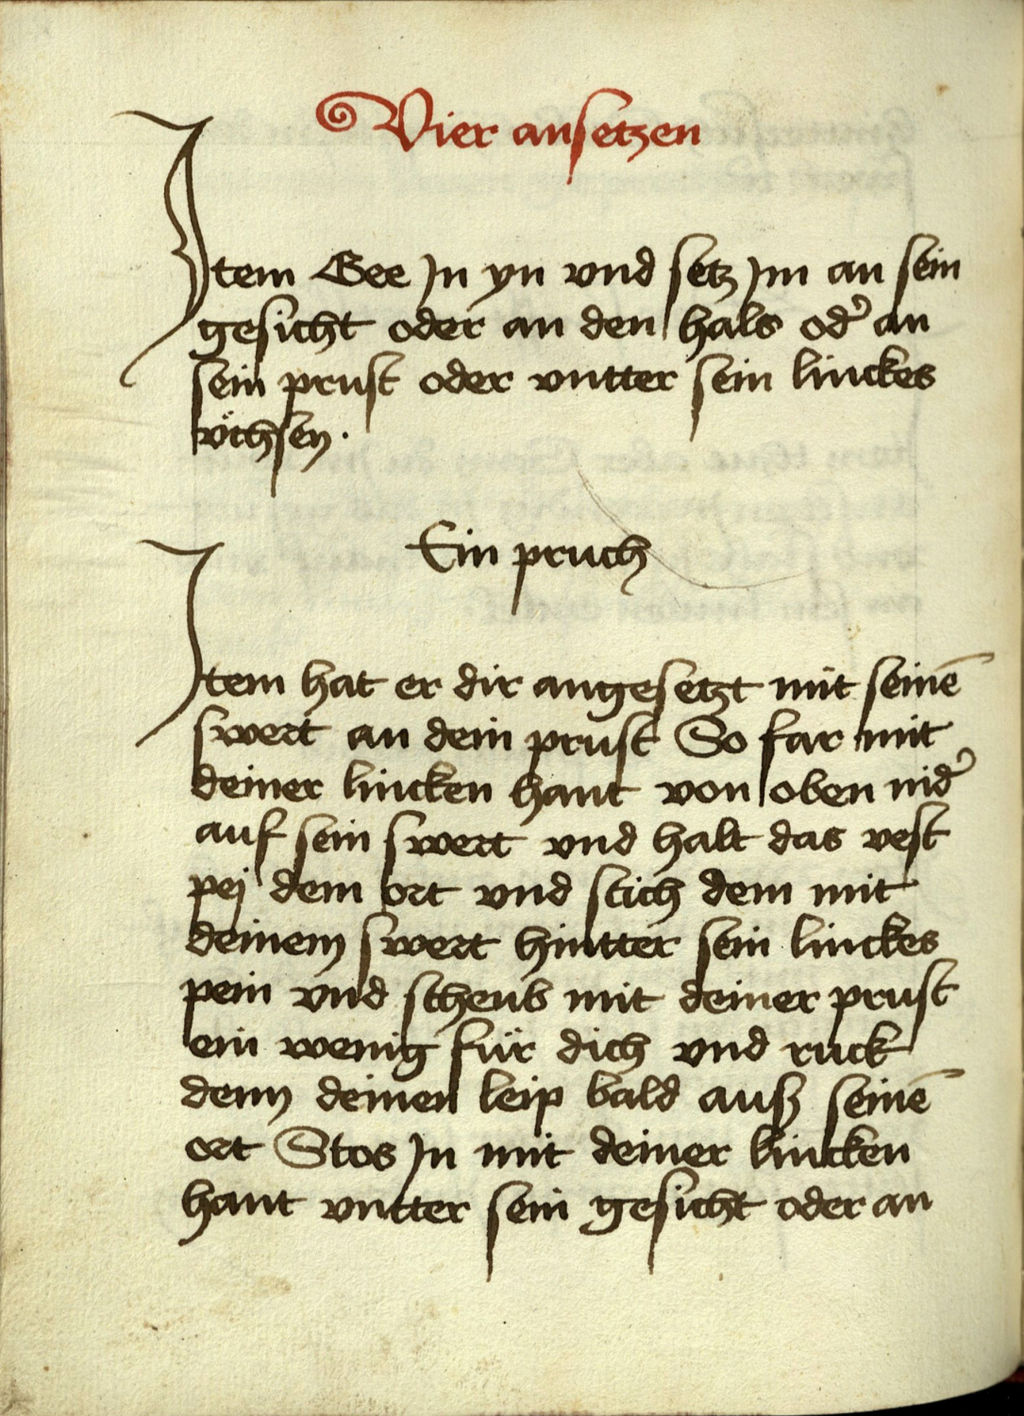 Vier ansetzen
Item Gee Jn yn vnd setz Jm an sein
gesicht oder an den hals od̉ an
sein prust oder vntter sein linckes
v̈chsen.
Ein pruch
Item hat er dir angesetzt mit seinē
swert an dein prust So far mit
deiner lincken hant von oben nid̉
auf sein swert vnd halt das vest
pej dem ort vnd stich dem mit
deinem swert hintter sein linckes
pein vnd scheub mit deiner prust
ein wenig für dich vnd ruck
denn deinen leip bald auß seinē
ort Stos Jn mit deiner lincken
hant vntter sein gesicht oder an